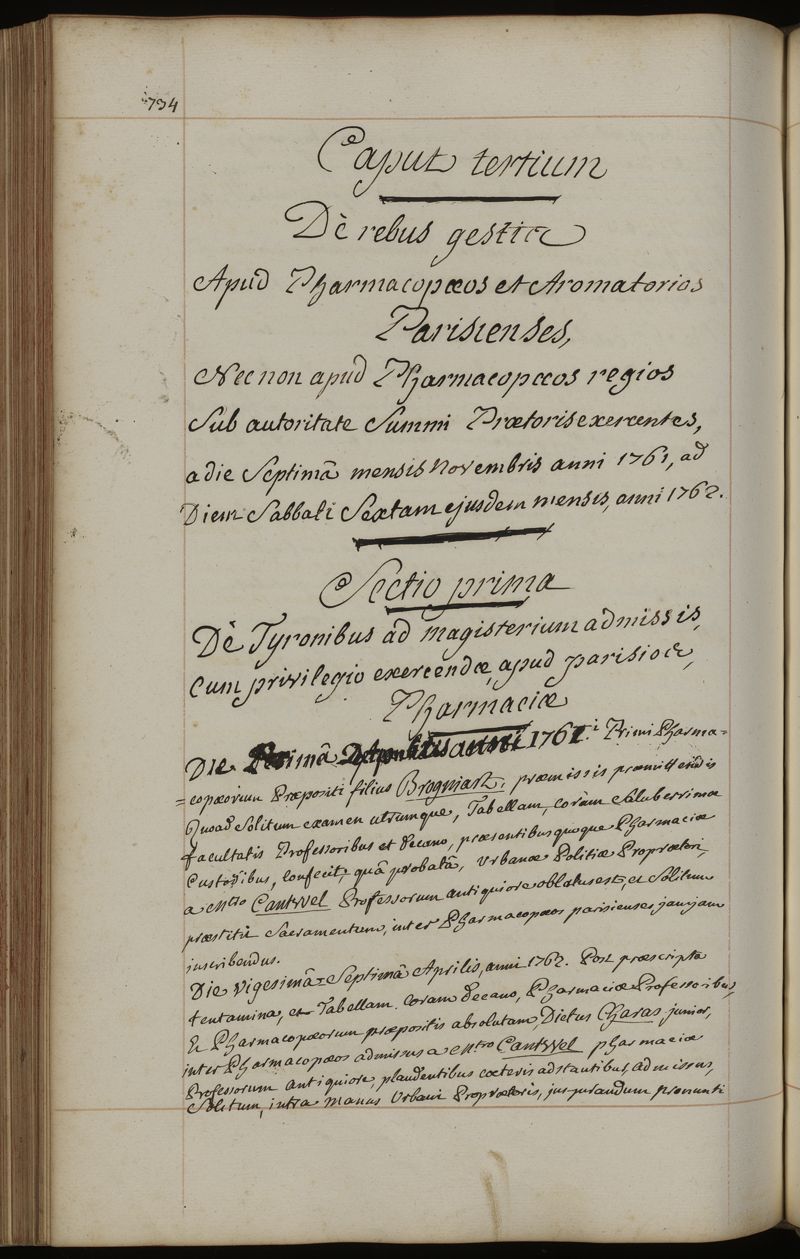 734
Caput tertium
Dè rebus gestis
Apud Pharmacopæos et Aromatorios
Parisienses,
Necnon apud Pharmacopæos regios
Sub autoritate Summi Prætoris exercentes,
a die Septimâ mensis novembris anni 1761, ad
Diem Sabbati Sextam ejusdem mensis, anni 1762.
Sectio prima
Dè Tyronibus ad magisterium admissis,
Cum privilegio exercendæ, apud parisios,
Pharmaciæ
Die Primâ anni 1762. Primi Pharma=
=copæorum Præpositi filius Brogniart, præmissis præmittendis
Quoad Solitum examen utrumque, Tabellam, coram Saluberrimæ
facultatis Professoribus et decano, præsentibus quoque Pharmaciæ
Custodibus, confecit, quâ probatâ, Urbanæ Politiæ Proprætori,
a Mtro Cantwel Professorum antiquiore oblatus est, et Solitum
præstitit Sacramentum, inter Pharmacopæos parisienses jamjam
inscribendus.
Die vigesimâ=Septimâ Aprilis, anni 1762. Post præscripta
tentamina, et Tabellam coram decano, Pharmaciæ Professoribus,
Et Pharmacopæorum præpositis absolutam Dictus Charas junior,
inter Pharmacopæos admissus a Mtro Cantwel pharmaciæ
Professorum antiquiore, plaudentibus cæteris adstantibus, admissus,
Solitum, intra manus Urbani Proprætoris, jus-jurandum pronunti